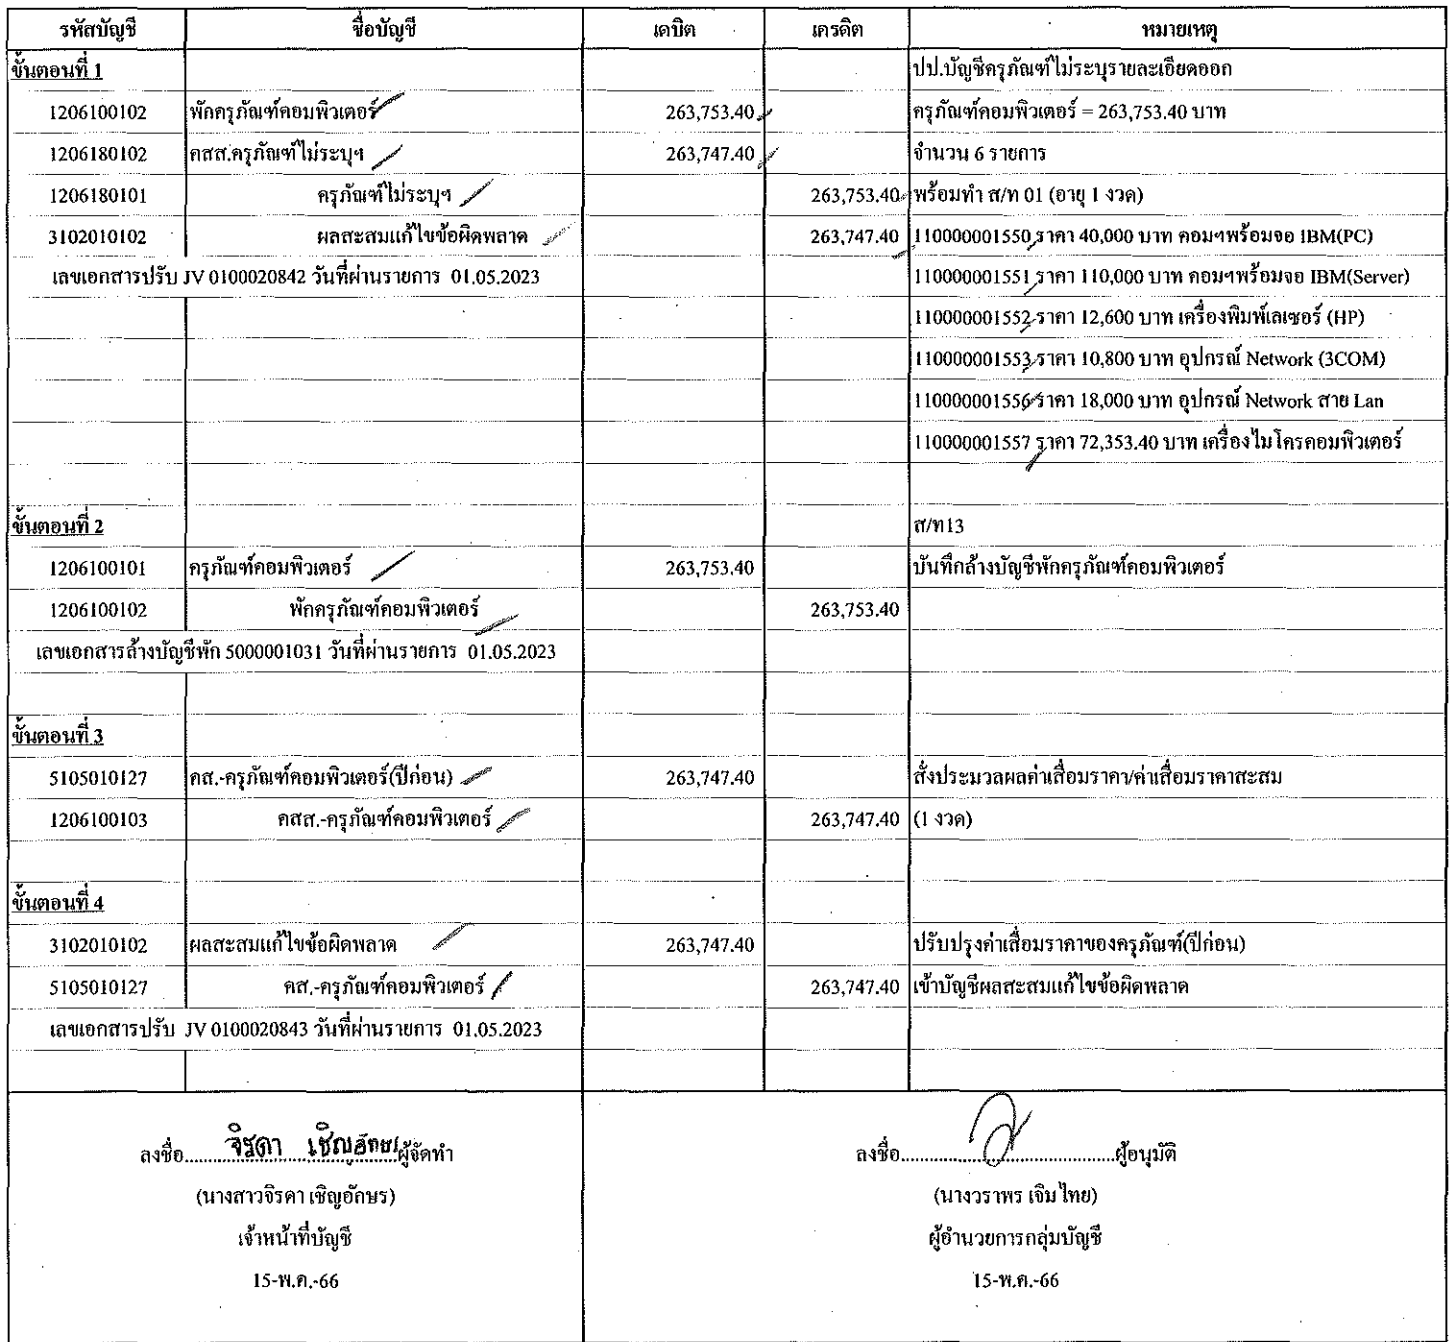 รหัสบัญชี ชื่อบัญชี เดบิต เครดิต หมายเหตุ
ขั้นตอนที่ 1 ปป.บัญชีครุภัณฑ์ไม่ระบุรายละเอียดออก
1206100102 พักครุภัณฑ์คอมพิวเตอร์ 263,753.40 ครุภัณฑ์คอมพิวเตอร์ = 263,753.40 บาท
1206180102 คสส.ครุภัณฑ์ไม่ระบุฯ 263,747.40 จำนวน 6 รายการ
1206180101 ครุภัณฑ์ไม่ระบุฯ 263,753.40 พร้อมทำ ส/ท 01 (อายุ 1 งวด)
3102010102 ผลสะสมแก้ไขข้อผิดพลาด 263,747.40 110000001550 ราคา 40,000 บาท คอมฯพร้อมจอ IBM(PC)
เลขเอกสารปรับ JV 0100020842 วันที่ผ่านรายการ 01.05.2023 110000001551 ราคา 110,000 บาท คอมฯพร้อมจอ IBM(Server)
110000001552 ราคา 12,600 บาท เครื่องพิมพ์เลเซอร์ (HP)
110000001553 ราคา 10,800 บาท อุปกรณ์ Network (3COM)
110000001556 ราคา 18,000 บาท อุปกรณ์ Network สาย Lan
110000001557 ราคา 72,353.40 บาท เครื่องไมโครคอมพิวเตอร์
ขั้นตอนที่ 2 ส/ท13
1206100101 ครุภัณฑ์คอมพิวเตอร์ 263,753.40 บันทึกล้างบัญชีพักครุภัณฑ์คอมพิวเตอร์
1206100102 พักครุภัณฑ์คอมพิวเตอร์ 263,753.40
เลขเอกสารล้างบัญชีพัก 5000001031 วันที่ผ่านรายการ 01.05.2023
ขั้นตอนที่ 3
5105010127 คส.-ครุภัณฑ์คอมพิวเตอร์(ปีก่อน) 263,747.40 สั่งประมวลผลค่าเสื่อมราคา/ค่าเสื่อมราคาสะสม
1206100103 คสส.-ครุภัณฑ์คอมพิวเตอร์ 263,747.40 (1 งวด)
ขั้นตอนที่ 4
3102010102 ผลสะสมแก้ไขข้อผิดพลาด 263,747.40 ปรับปรุงค่าเสื่อมราคาของครุภัณฑ์(ปีก่อน)
5105010127 คส.-ครุภัณฑ์คอมพิวเตอร์ 263,747.40 เข้าบัญชีผลสะสมแก้ไขข้อผิดพลาด
เลขเอกสารปรับ JV 0100020843 วันที่ผ่านรายการ 01.05.2023
ลงชื่อ จิรดา เชิญอักษร ผู้จัดทำ ลงชื่อ ผู้อนุมัติ
(นางสาวจิรดา เชิญอักษร) (นางวราพร เจิมไทย)
เจ้าหน้าที่บัญชี ผู้อำนวยการกลุ่มบัญชี
15-พ.ค.-66 15-พ.ค.-66